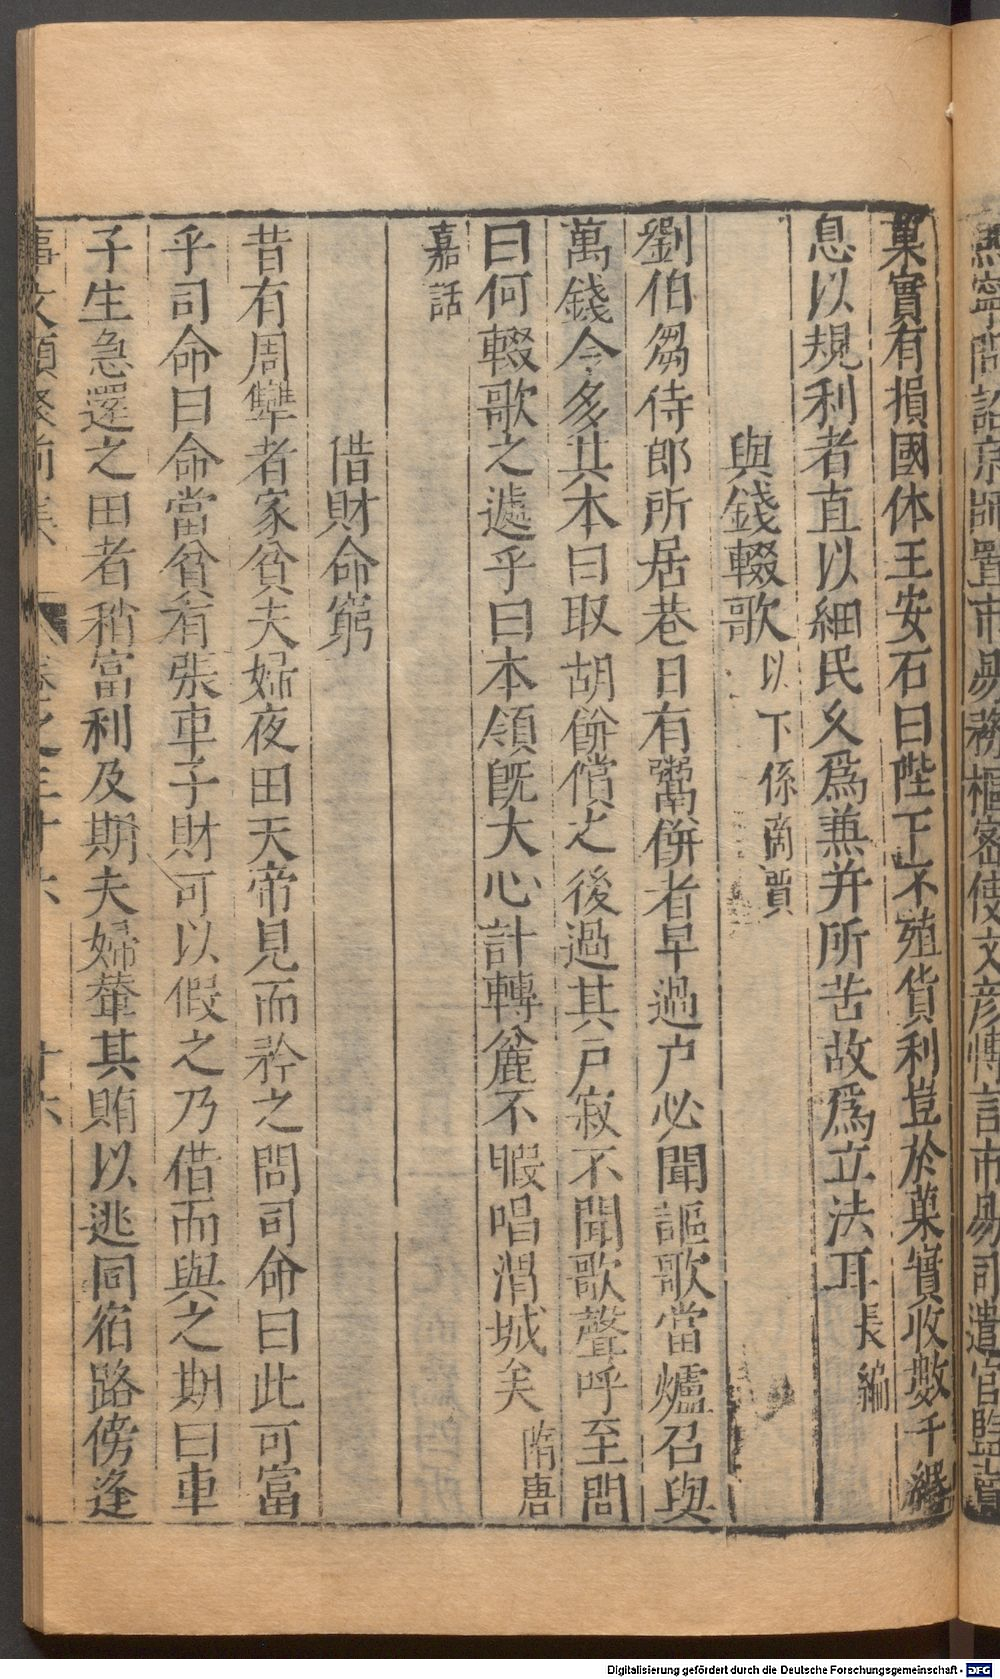 熈寧間詔京師置市易務樞密使文彦博言市易司遣官監賣
菓實有損國体王安石曰陛下不殖貨利豈於菓實收數千緡
息以規利者直以細民久爲兼并所苦故爲立法耳長編
與錢輟歌以下係商賈
劉伯芻侍郎所居巷日有鬻餅者早過户必聞謳歌當爐召與
萬錢令多其本曰取胡餅償之後過其户寂不聞歌聲呼至問
曰何輟歌之遽乎曰本領旣大心計轉麄不暇唱渭城矣隋唐
嘉話
借財命窮
昔有周犨者家貧夫婦夜田天帝見而矜之問司命曰此可富
乎司命曰命當貧有張車子財可以假之乃借而與之期曰車
子生急還之田者稍富利及期夫婦輦其賄以逃同宿路傍逢
事文類聚前集 卷之三十六 十六
Digitalisierung gefördert durch die Deutsche Forschungsgemeinschaft - DFG